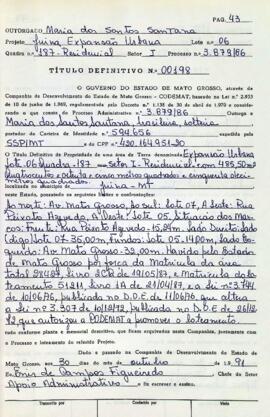 PAG. 43
OUTORGADO Maria dos Santos Santana
Projeto Juina Expansão Urbana Lote 06
Quadra nº 187- Residencial Setor I Processo nº 3.879/86
TÍTULO DEFINITIVO Nº 00198
O GOVERNO DO ESTADO DE MATO GROSSO, através da
Companhia de Desenvolvimento do Estado de Mato Grosso - CODEMAT, baseado na Lei nº 2.953
de 10 de junho de 1969, regulamentada pelo Decreto nº 1.138 de 30 de abril de 1970 e considerando
o que consta do Processo Administrativo nº 3.879/86 Outorga a
Maria dos Santos Santana, brasileira, solteira
portador da Carteira de Identidade nº 594.656 expedida pelo
SSP/MT e CPF nº 420.164.951-20
O Título Definitivo de Propriedade de uma área de Terra denominada Expansão Urbana
Lote 06 Quadra-187 Setor I- Residencial com 485,50m2
Quatrocentos e oitenta e cinco metros quadrados e cinquenta
metros quadrados.
localizada no município de Juina - MT
neste Estado, possuindo os seguintes limites e confrontações:
Ao norte: Av. Mato Grosso, ao sul: lote 07, A leste: Rua
Privato Azevedo, A Oeste: lote 05. Situação dos Mar-
cos: Frente: Rua Azevedo- Lado Direito: lado
lote 07 35,00m, Fundos: lote 05-14,00m, lado Es-
querdo: Av. Mato Grosso- 32,00m. Havido pelo Estado
de Mato Grosso por força da Matricula da área
total 28484 livro 2CA de 19/05/87, e Matricula do lo-
teamento 51211 livro 1A de 21/04/87, e a lei nº 3.744
de 10/06/76, publicado no D.O.E de 11/06/76, que altera
a lei nº 3.307 de 10/12/72, publicado no D.O.E de 26/12/
72 que autoriza a CODEMAT a promover o loteamento.
conforme planta e memorial descritivo, que ficam arquivados nesta Companhia, juntamente com
o Processo e loteamento do referido Projeto.
Dado e passado na Companhia de Desenvolvimento do Estado de
Mato Grosso, aos 30 dias do mês de outubro de 19 91
Eu de Campos Figueiredo Chefe do Setor
Apoio Administrativo de Fiz escrever e assino.
Transcrito por Conferido por Visto